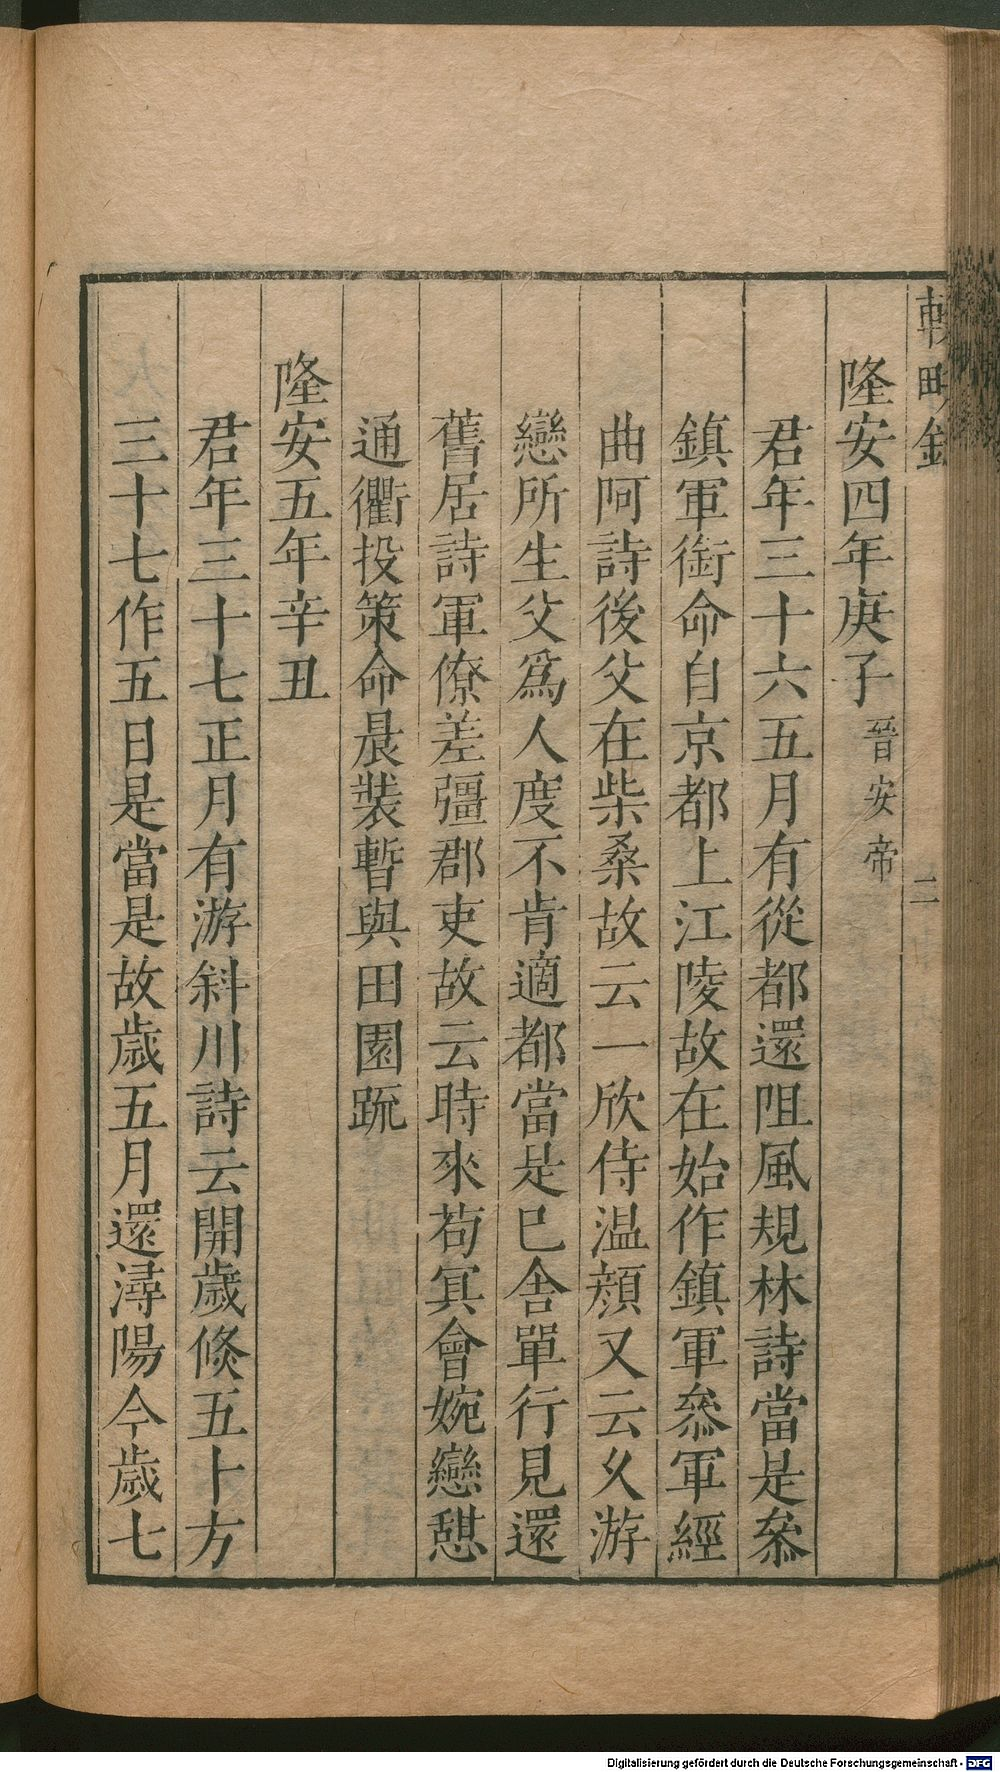 隆安四年庚子晉安帝
君年三十六五月有從都還阻風規林詩當是叅
鎮軍銜命自京都上江陵故在始作鎮軍叅軍經
曲阿詩後父在柴桑故云一欣侍温顔又云久游
戀所生父爲人度不肯適都當是已舍單行見還
舊居詩軍僚差彊郡吏故云時來茍㝠會婉戀憇
通衢投策命晨裝暫與田園䟽
隆安五年辛丑
君年三十七正月有游斜川詩云開歲倐五十方
三十七作五日是當是故歲五月還潯陽今歲七
二
Digitalisierung gefördert durch die Deutsche Forschungsgemeinschaft - DFG